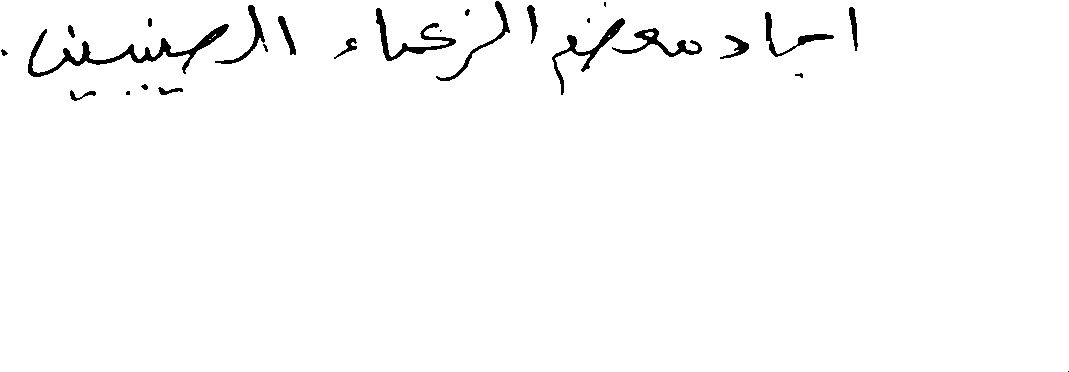 اجاد معضم الزعماء الصينيين.